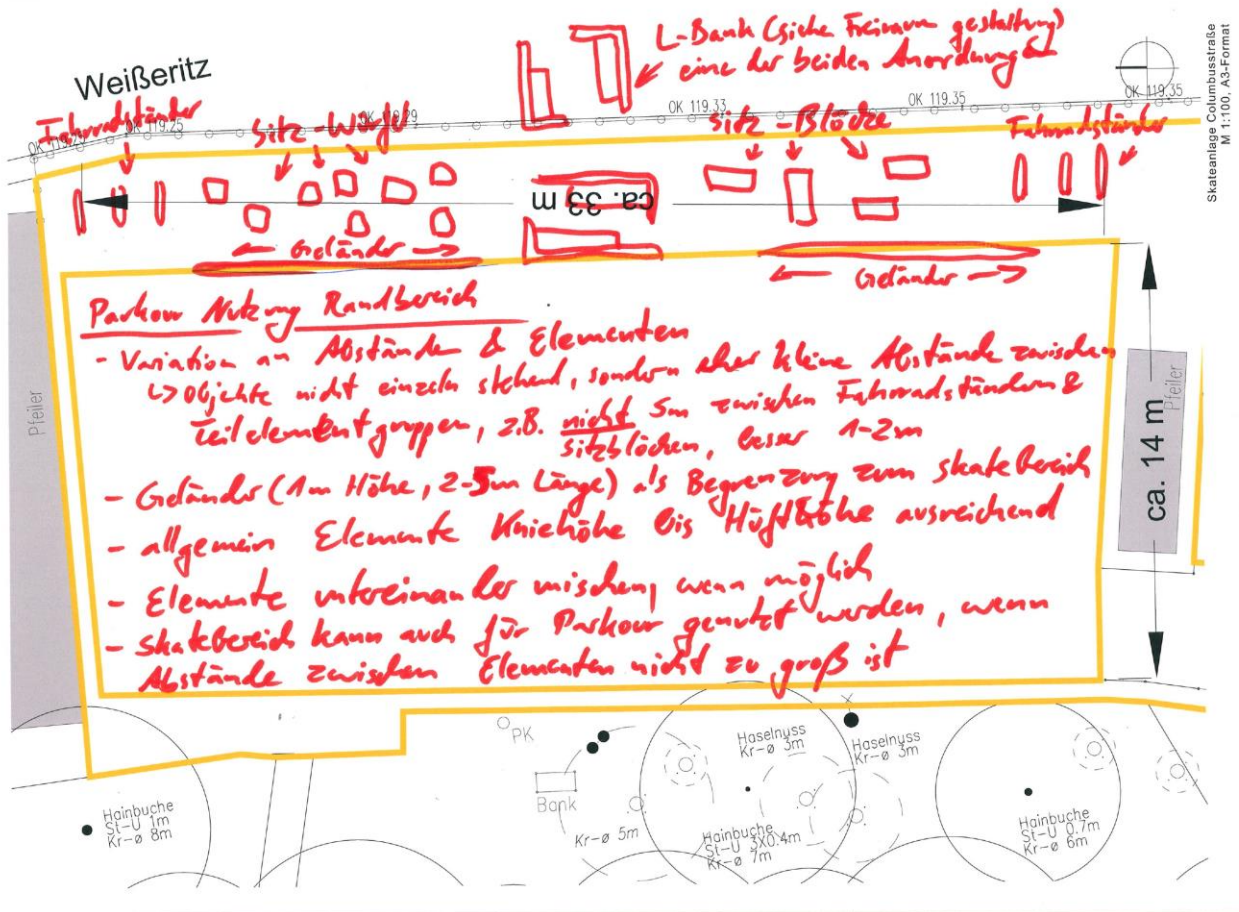 L-Bank (siehe Freiraumgestaltung)
eine der beiden Anordnungen
Skateanlage Columbusstraße
M 1:100, A3-Format
Weißeritz
Fahrradständer
OK 119.25
Sitz-Würfel
OK 119.33
OK 119.35
OK 119.35
Sitz-Blöcke
Fahrradständer
ca. 33 m
← Geländer →
← Geländer →
Parkour Nutzung Randbereich
- Variation an Abstände & Elementen
↳ Objekte nicht einzeln stehend, sondern eher kleine Abstände zwischen
Teilelementgruppen, z.B. nicht 5m zwischen Fahrradständern &
Sitzblöcken, besser 1-2m
- Geländer (1m Höhe, 2-5m Länge) als Begrenzung zum Skatebereich
- allgemein Elemente Kniehöhe bis Hüfthöhe ausreichend
- Elemente untereinander mischen, wenn möglich
- Skatebereich kann auch für Parkour genutzt werden, wenn
Abstände zwischen Elementen nicht zu groß ist
Pfeiler
Pfeiler
ca. 14 m
PK
Bank
Haselnuss
Kr-ø 3m
Haselnuss
Kr-ø 3m
Hainbuche
St-U 1m
Kr-ø 8m
Kr-ø 5m
Hainbuche
St-U 3X0.4m
Kr-ø 7m
Hainbuche
St-U 0.7m
Kr-ø 6m